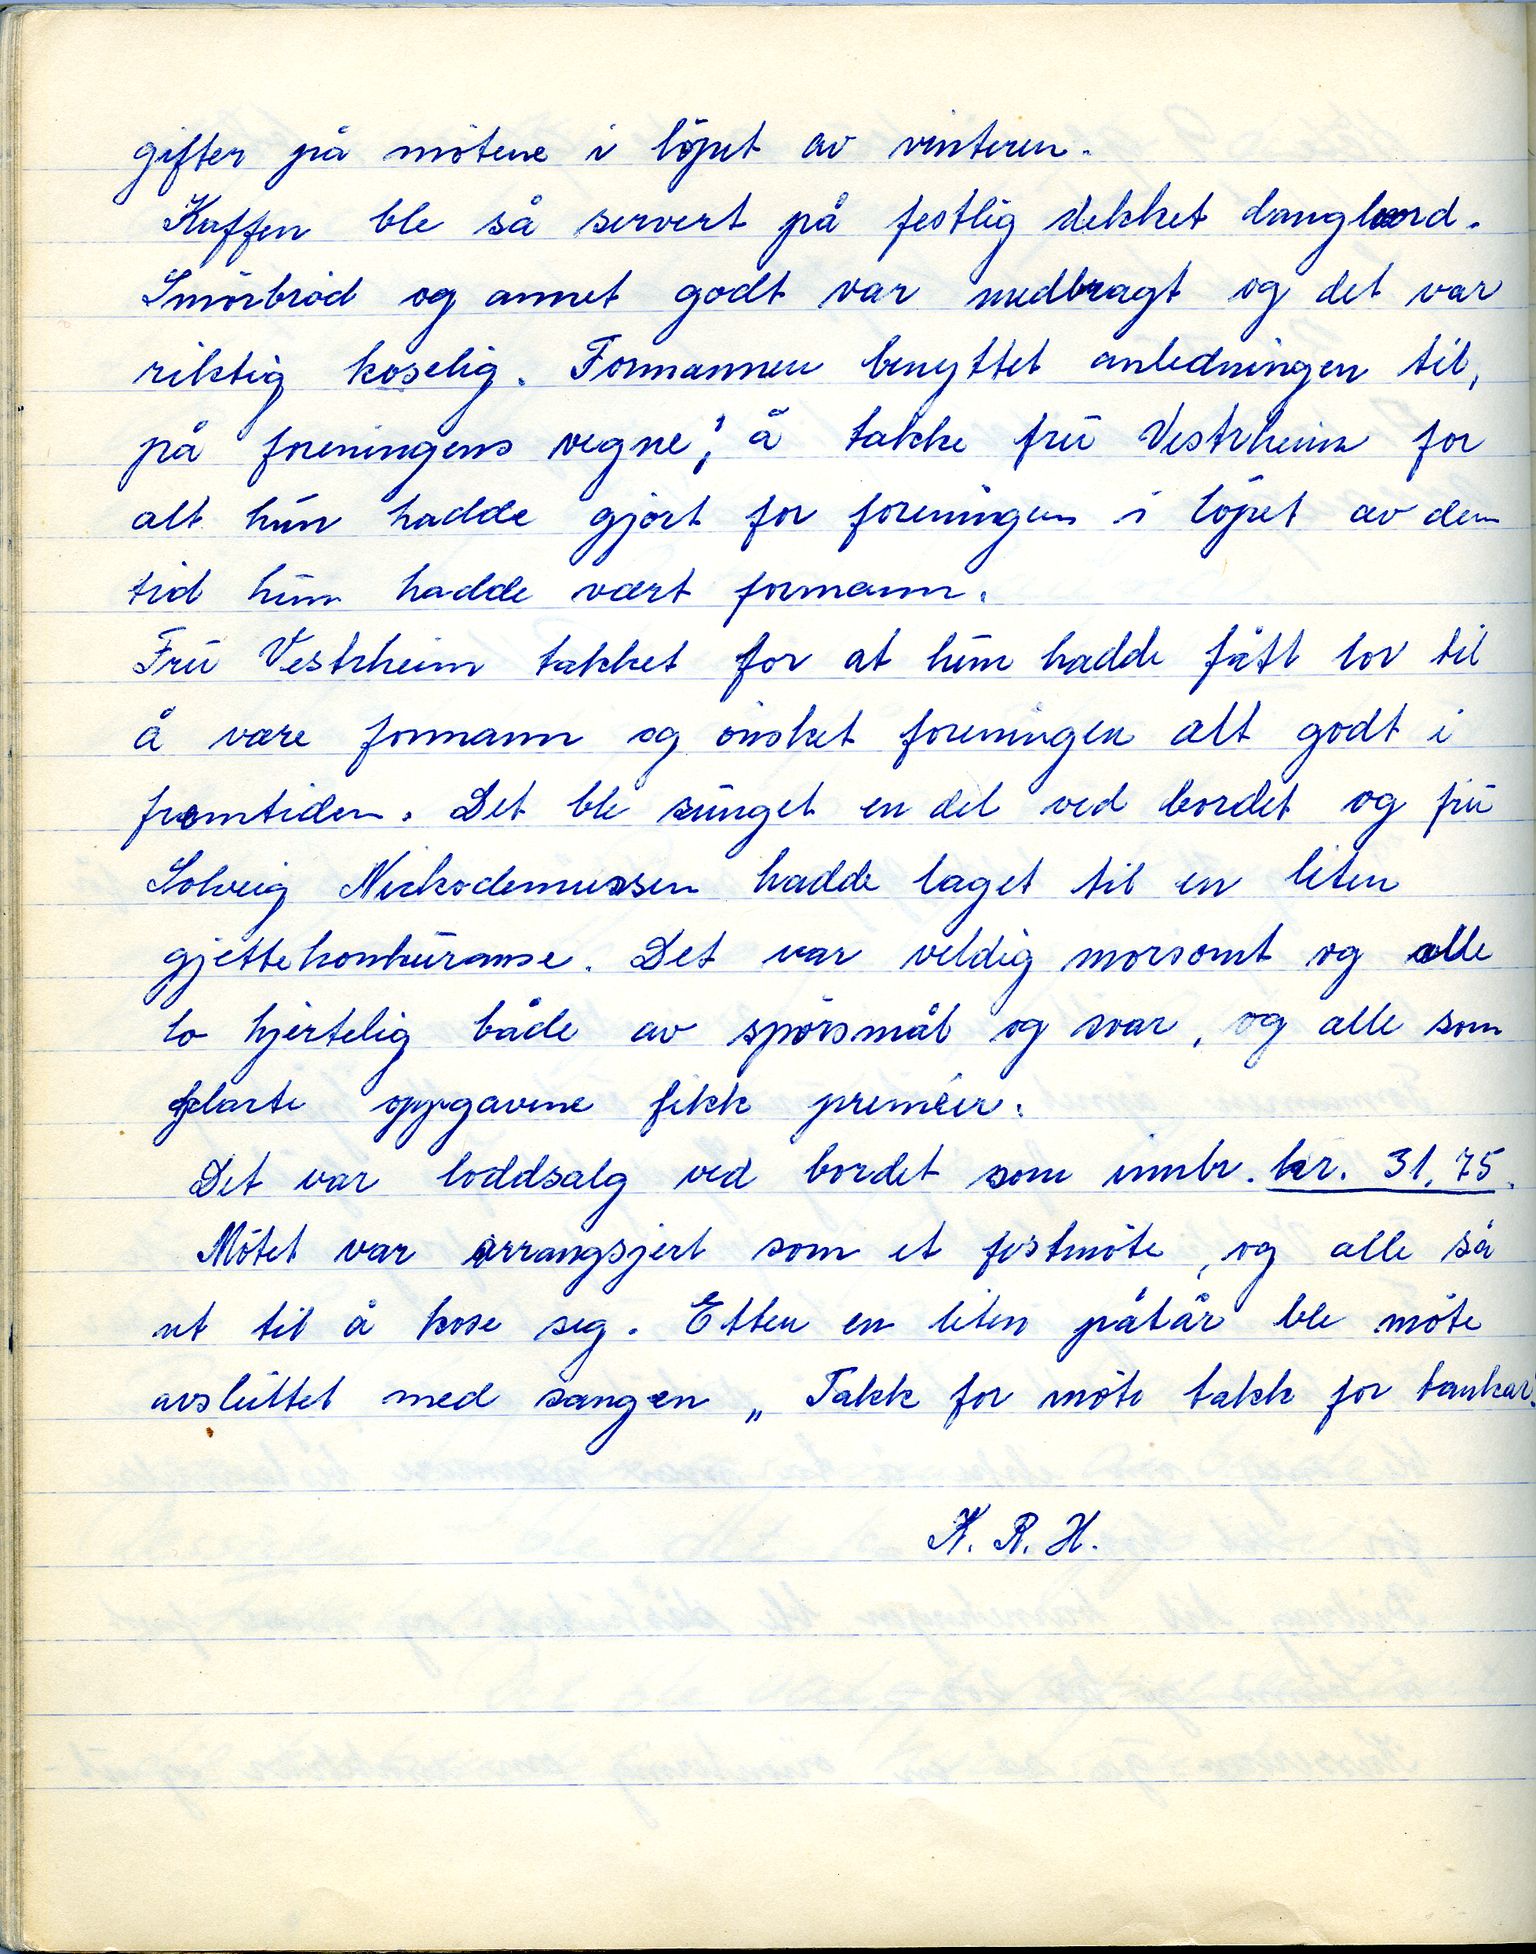 gifter på mötene i löpet av vinteren.
Kaffen ble så servert på festlig dekket langbord.
Smörbröd og annet godt var medbragt og det var
riktig koselig. Formannen benyttet anledningen til,
på foreningens vegne, å takke frü Vestrheim for
alt hün hadde gjort for foreningen i löpet av den
tid hün hadde vært formann.
Frü Vestrheim takket for at hün hadde fått lov til
å være formann og önsket foreningen alt godt i
fremtiden. Det ble sünget en del ved bordet og frü
Solveig Nickodemussen hadde laget til en liten
gjettekonküranse. Det var veldig morsomt og alle
lo hjertelig både av spörsmål og svar, og alle som
klarte oppgavene fikk premier.
Det var loddsalg ved bordet som innbr. kr. 31,75.
Mötet var arrangsjert som et festmöte, og alle så
ut til å kose seg. Etter en liten påtår ble möte
avslüttet med sangen „ Takk for möte takk for tankar."
K. R. H.